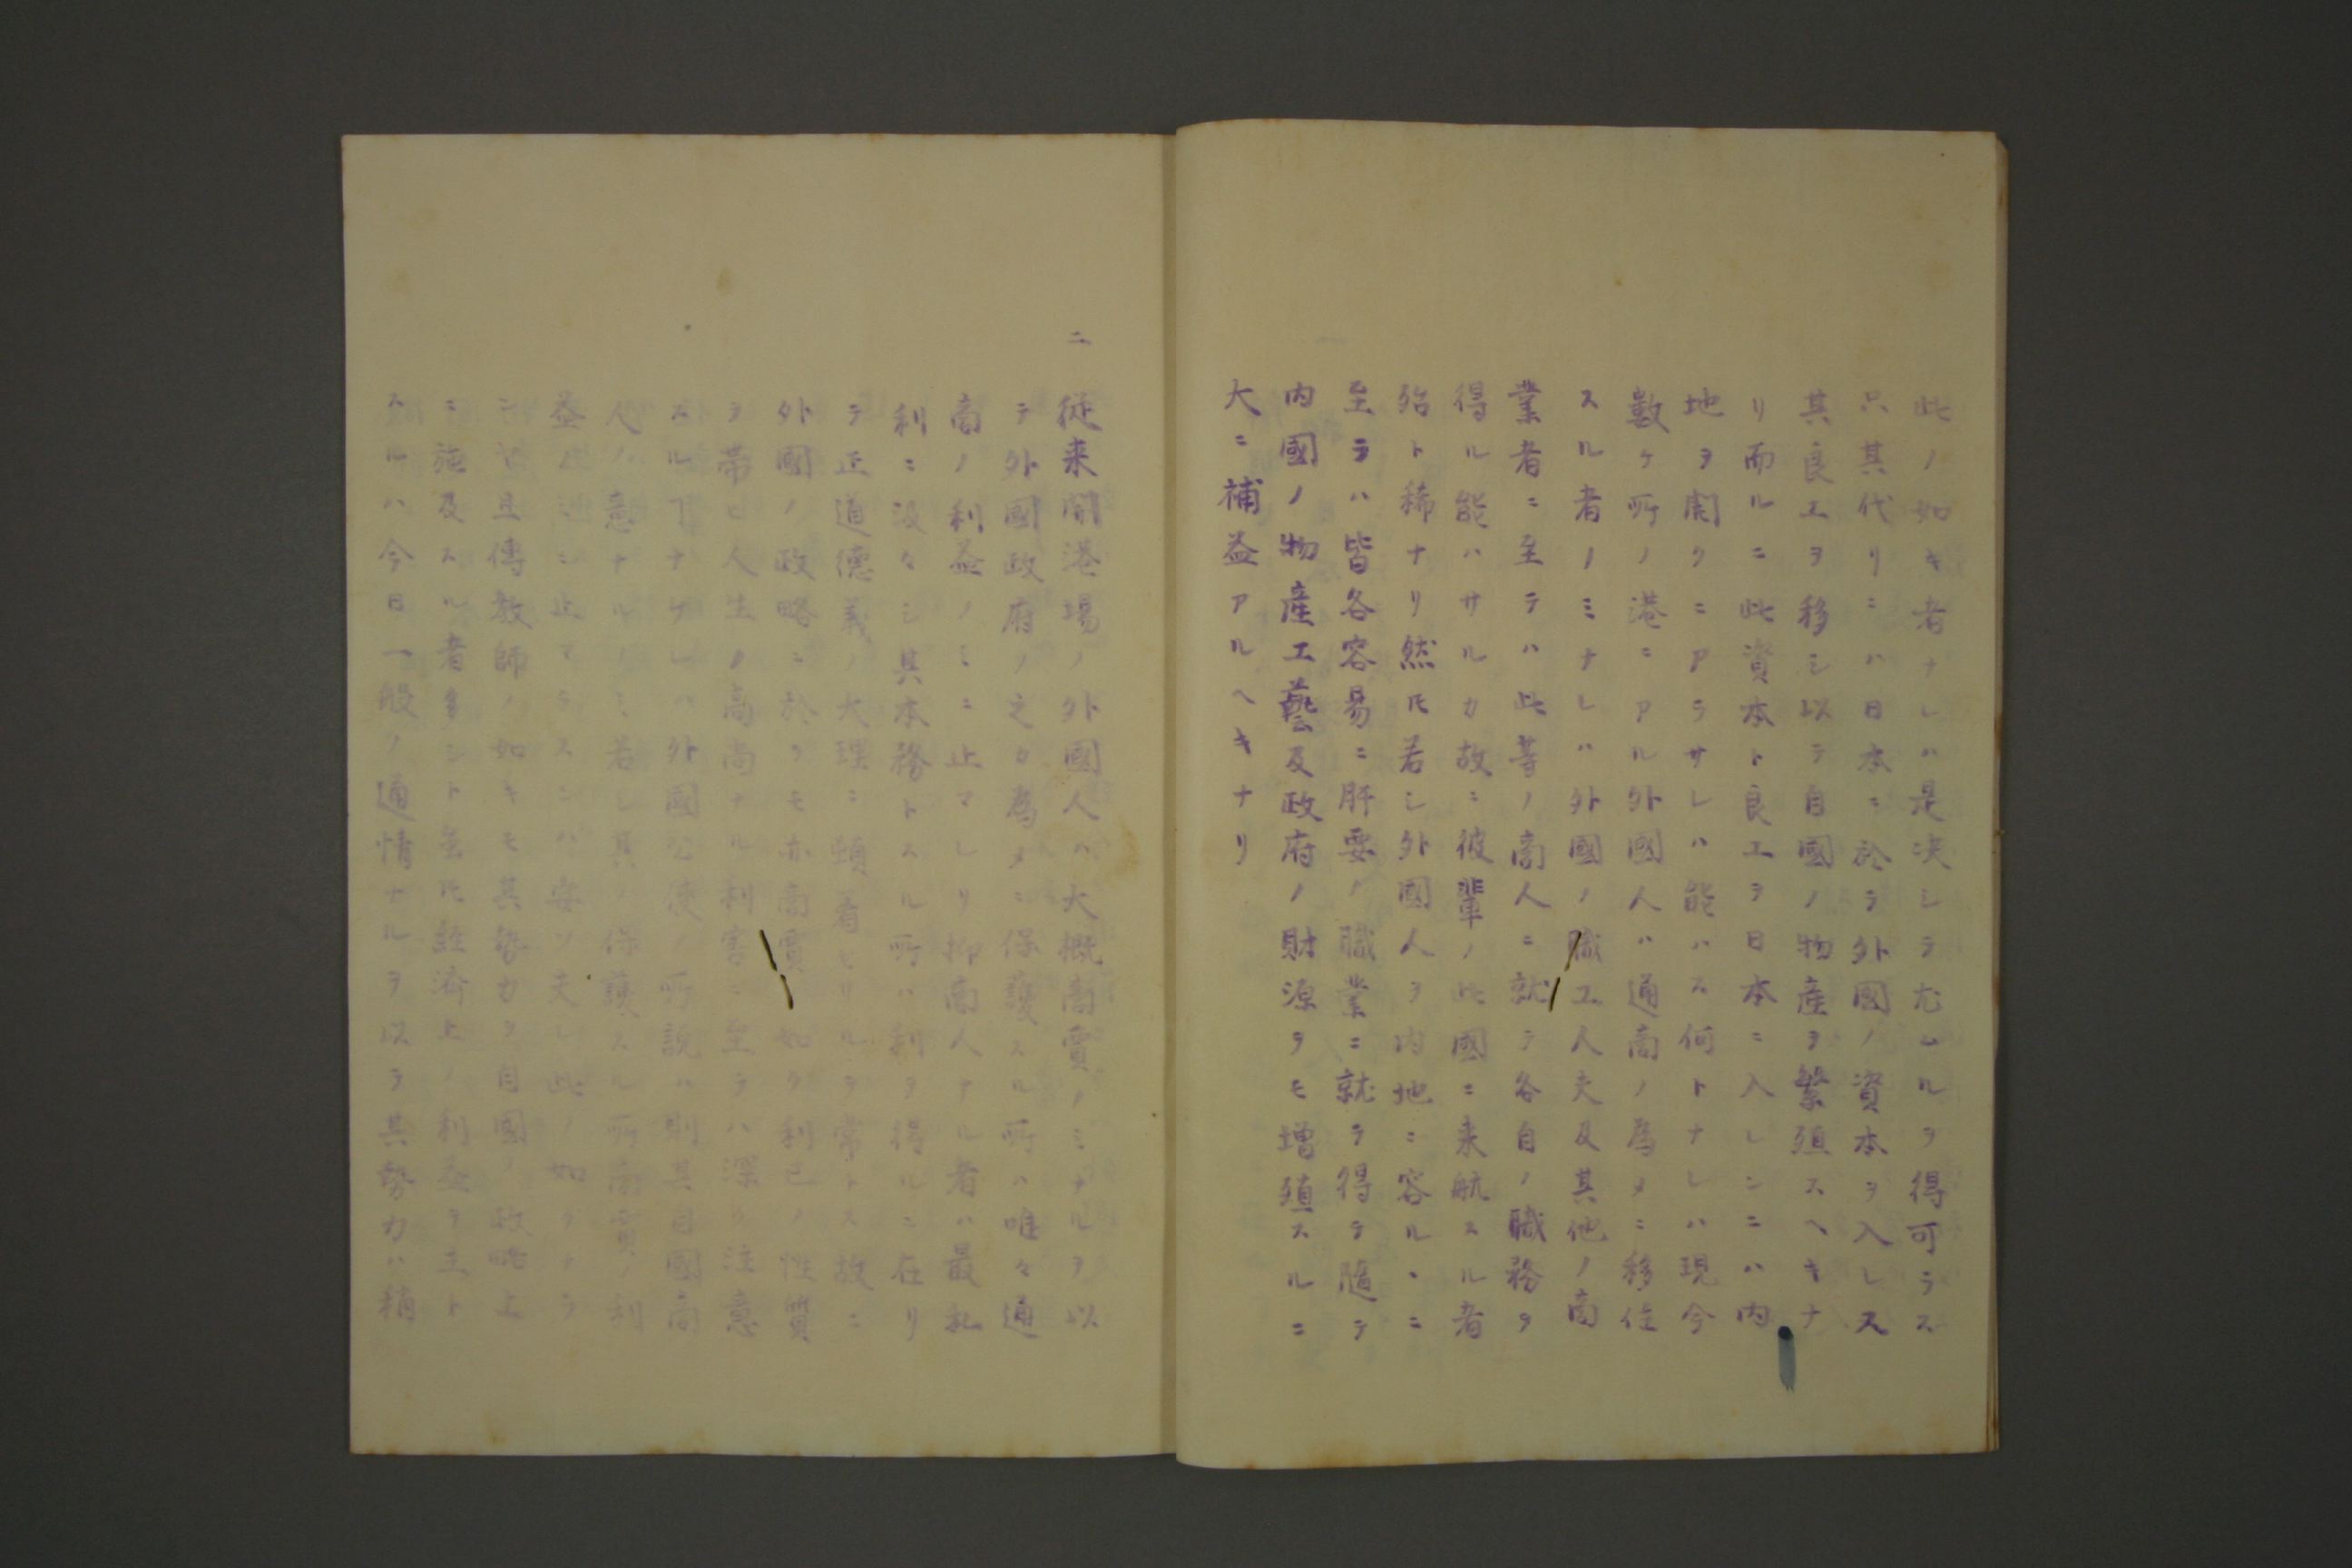 此ノ如キ者ナレハ是决シテ尤ムルヲ得可ラス
只其代リニハ日本ニ於テ外國ノ資本ヲ入レス
其良工ヲ移シ以テ自國ノ物產ヲ繁殖スヘキナ
リ而ルニ此資本ト良工ヲ日本ニ入レンニハ内
地ヲ開クニアラサレハ能ハス何トナレハ現今
數ケ所ノ港ニアル外國人ハ通商ノ爲メニ移住
スル者ノミナレハ外國ノ職工人夫及其他ノ商
業者ニ至テハ此等ノ商人ニ就テ各自ノ職務ヲ
得ル能ハサルカ故ニ彼輩ノ此國ニ来航スル者
殆ト稀ナリ然𪜈若シ外國人ヲ内地ニ容ルヽニ
至ラハ皆各容易ニ肝要ノ職業ニ就ヲ得テ隨テ
内國ノ物產工藝及政府ノ財源ヲモ增殖スルニ
大ニ補益アルヘキナリ
二
從来開港場ノ外國人ハ大概商賣ノミナルヲ以
テ外國政府ノ之カ爲メニ保護スル所ハ唯々通
商ノ利益ノミニ止マレリ抑商人ナル者ハ最私
利ニ汲々シ其本務トスル所ハ利ヲ得ルニ在リ
テ正道德義ノ大理ニ顧着セサルヲ常トス故ニ
外國ノ政略ニ於テモ亦商賣ノ如ク利己ノ性質
ヲ帶ヒ人生ノ高尚ナル利害ニ至テハ深ク注意
スルヿナケレハ外國公使ノ所說ハ則其自國商
人ノ意ナルノミ若シ其ノ保護スル所商賣ノ利
益ノミニ止マラスンハ安ソ夫レ此ノ如クナラ
ン哉且傳教師ノ如キモ其勢力ヲ自國ノ政略上
ニ施及スル者多シト雖𪜈經濟上ノ利益ヲ主ト
スルハ今日一般ノ通情ナルヲ以テ其勢力ハ稍